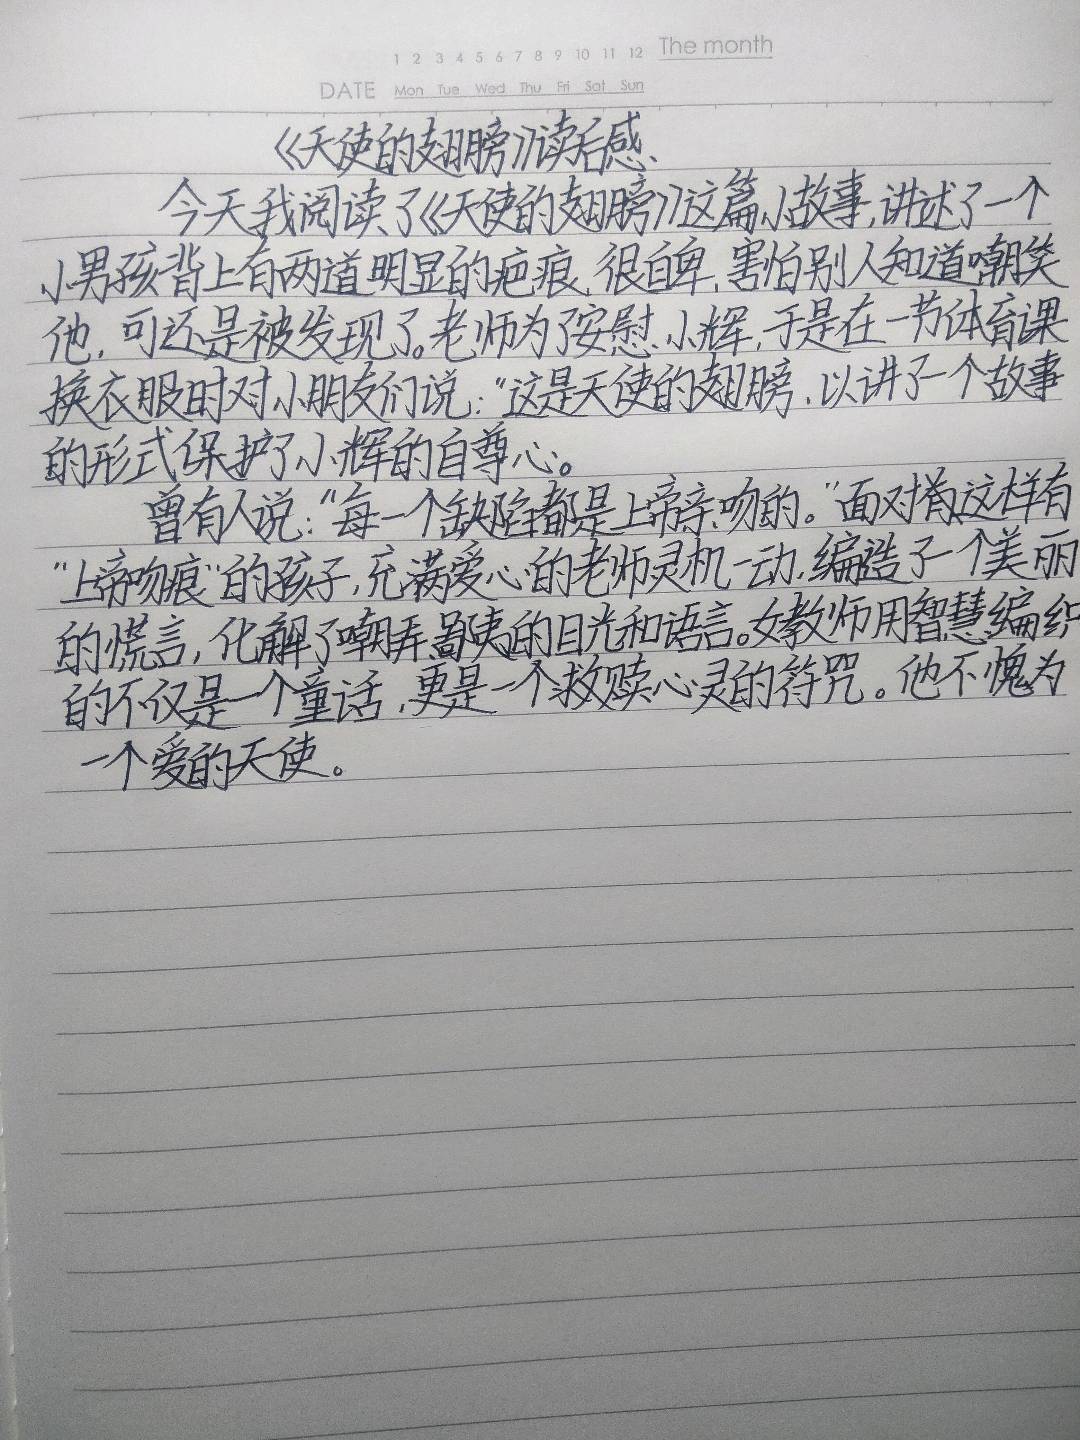 1 2 3 4 5 6 7 8 9 10 11 12 The month
DATE Mon Tue Wed Thu Fri Sat Sun
《天使的翅膀》读后感
今天我阅读了《天使的翅膀》这篇小故事,讲述了一个
小男孩背上有两道明显的疤痕,很自卑,害怕别人知道嘲笑
他,可还是被发现了。老师为了安慰小辉,于是在一节体育课
换衣服时对小朋友们说:“这是天使的翅膀,以讲了一个故事
的形式保护了小辉的自尊心。
曾有人说:“每一个缺陷都是上帝亲吻的。”面对着这样有
“上帝吻痕”的孩子,充满爱心的老师灵机一动,编造了一个美丽
的慌言,化解了嘲弄鄙夷的目光和语言。女教师用智慧编织
的不仅是一个童话,更是一个救赎心灵的符咒。他不愧为
一个爱的天使。